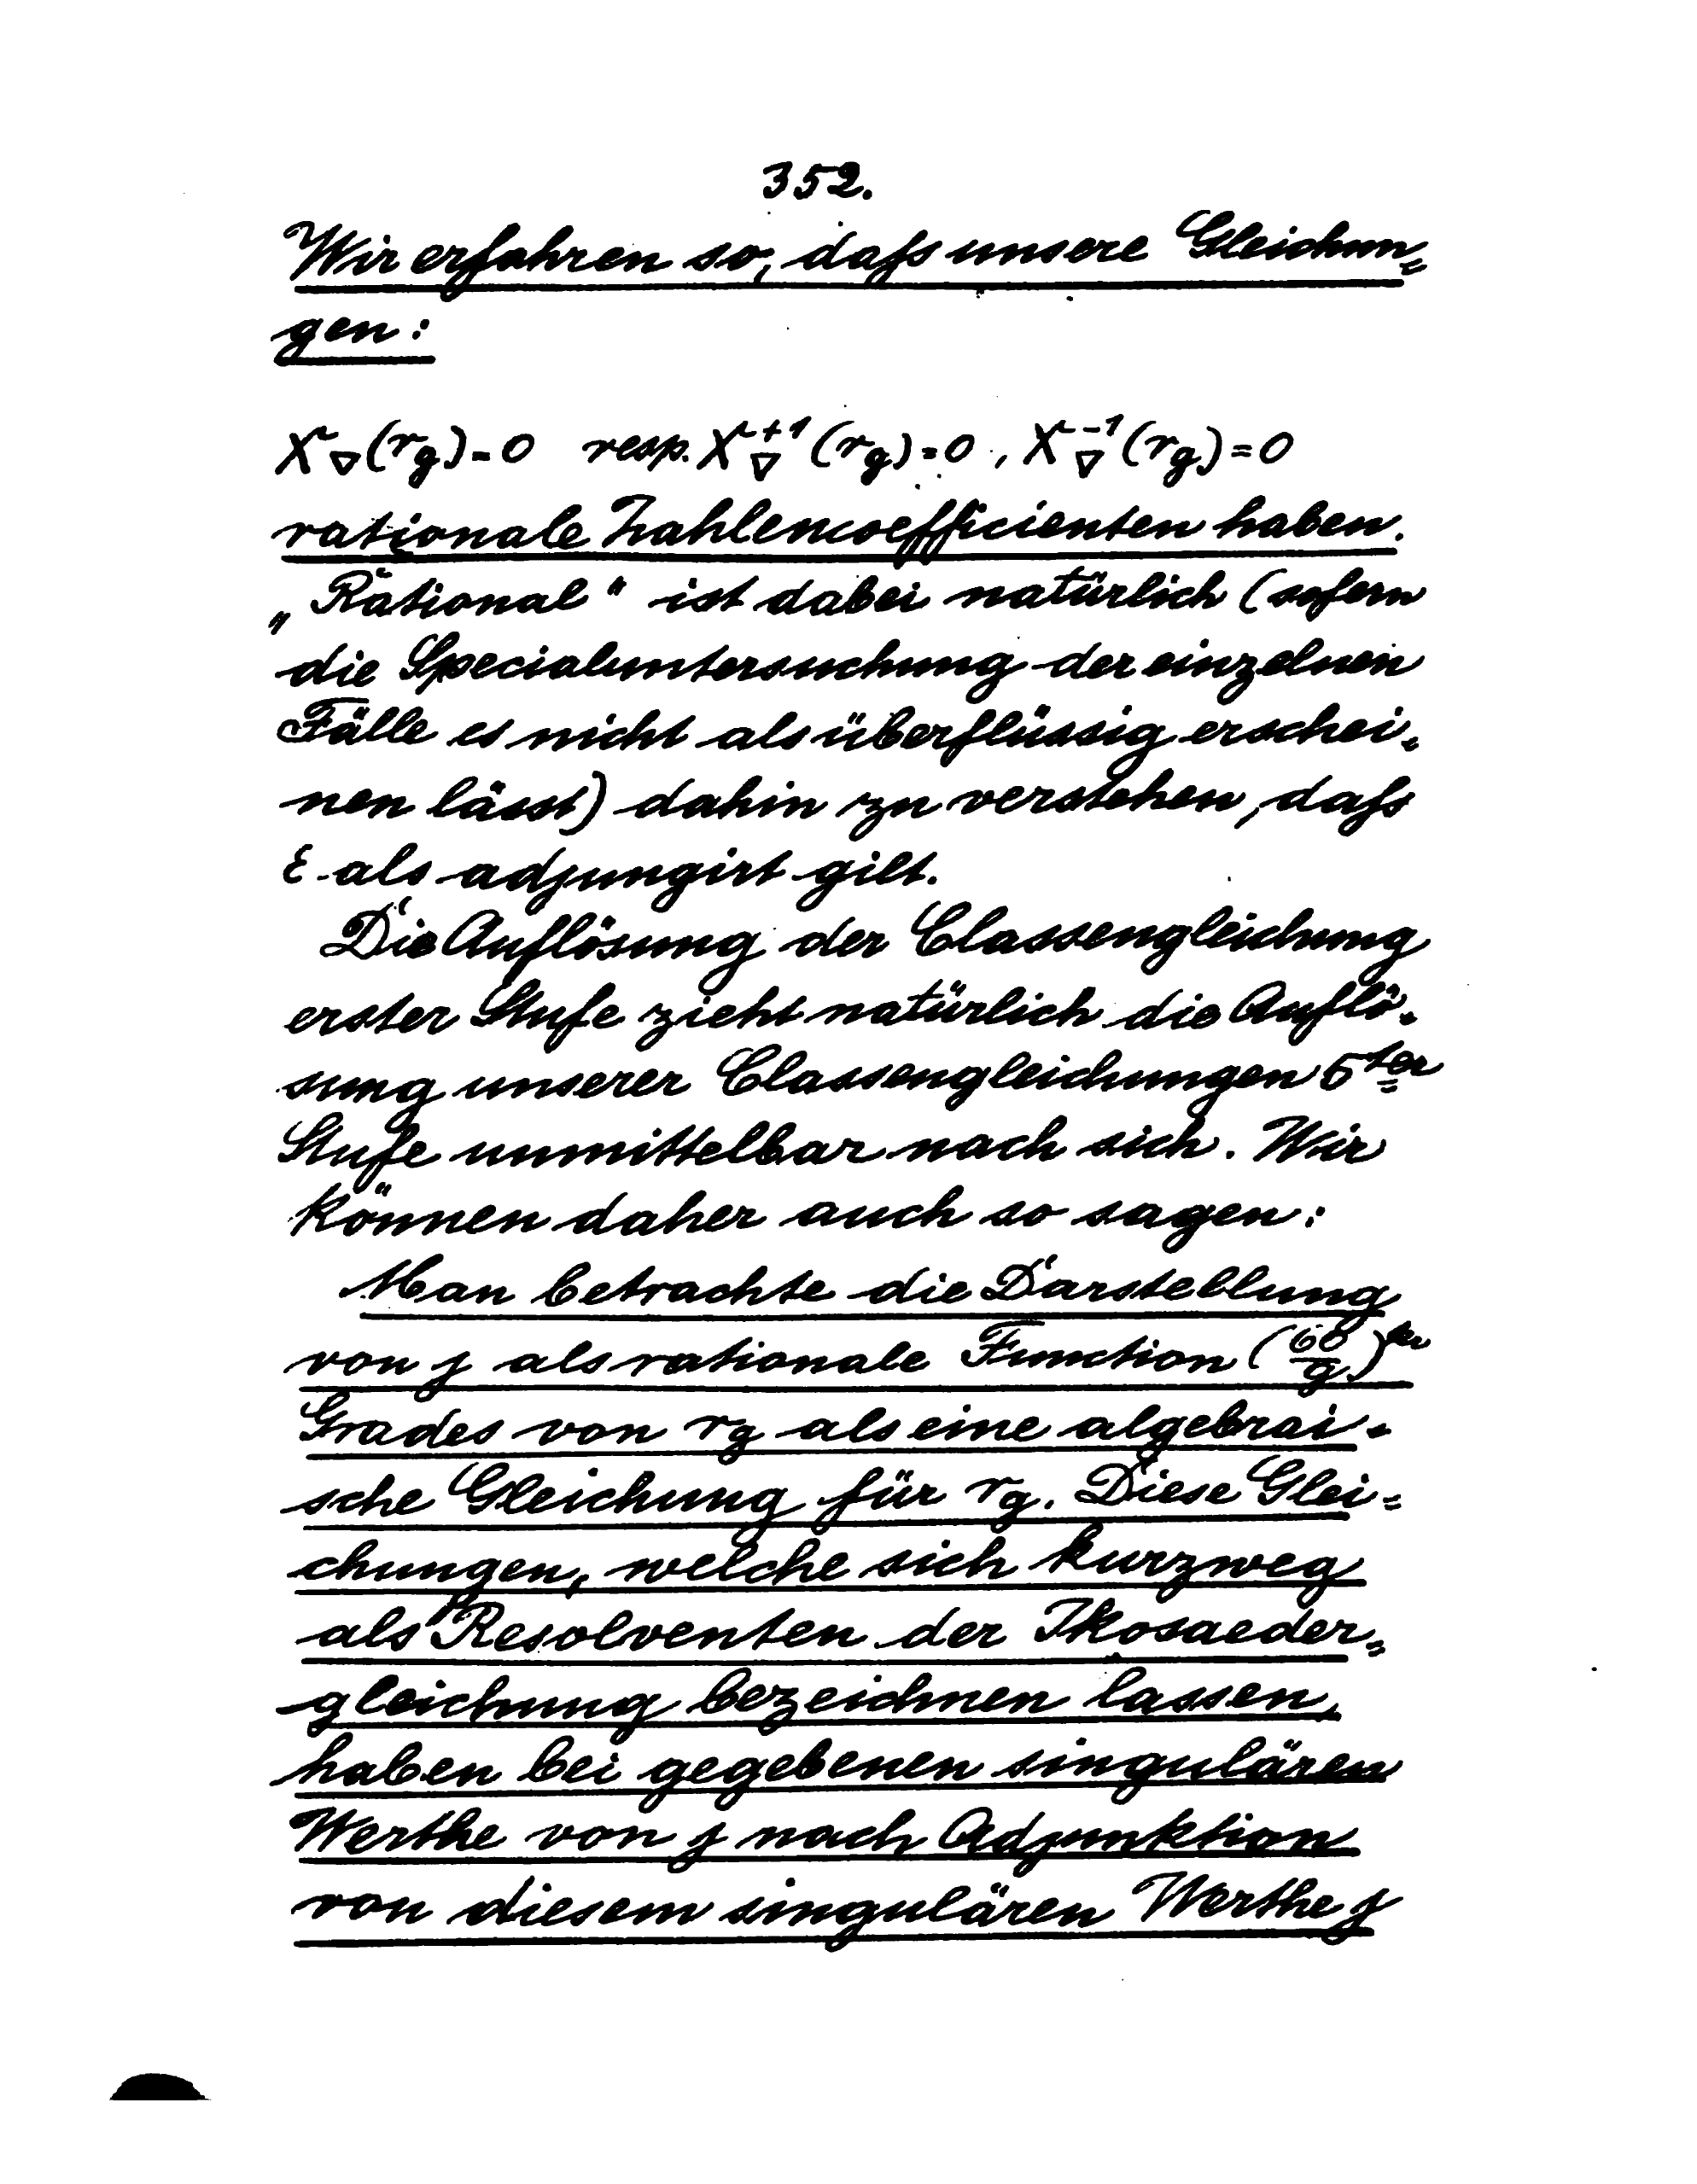 352.
Wir erfahren so, daſs unsere Gleichun=
gen:
X▽(r_g)=0 resp. X▽^{+1}(r_g)=0, X▽^{-1}(r_g)=0
rationale Zahlencoefficienten haben.
„Rational“ ist dabei natürlich (sofern
die Specialuntersuchung der einzelnen
Fälle es nicht als überflüssig erschei=
nen lässt) dahin zu verstehen, daſs
ε als adjungirt gilt.
Die Auflösung der Classengleichung
erster Stufe zieht natürlich die Auflö=
sung unserer Classengleichungen 5ter
Stufe unmittelbar nach sich. Wir
können daher auch so sagen:
Man betrachte die Darstellung
von j als rationale Function (60/g)ten
Grades von r_g als eine algebrai=
sche Gleichung für r_g. Diese Glei=
chungen, welche sich kurzweg
als Resolventen der Ikosaeder=
gleichung bezeichnen lassen,
haben bei gegebenen singulären
Werthe von j nach Adjunktion
von diesem singulären Werthe j